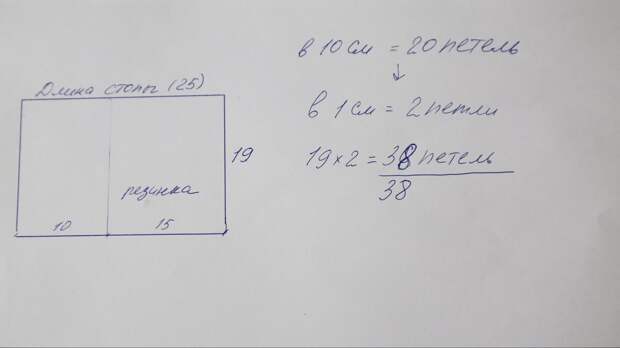 Длина стопы (25)
19
резинка
10 15
в 10 см = 20 петель
↓
в 1 см = 2 петли
19 × 2 = 38 петель
38